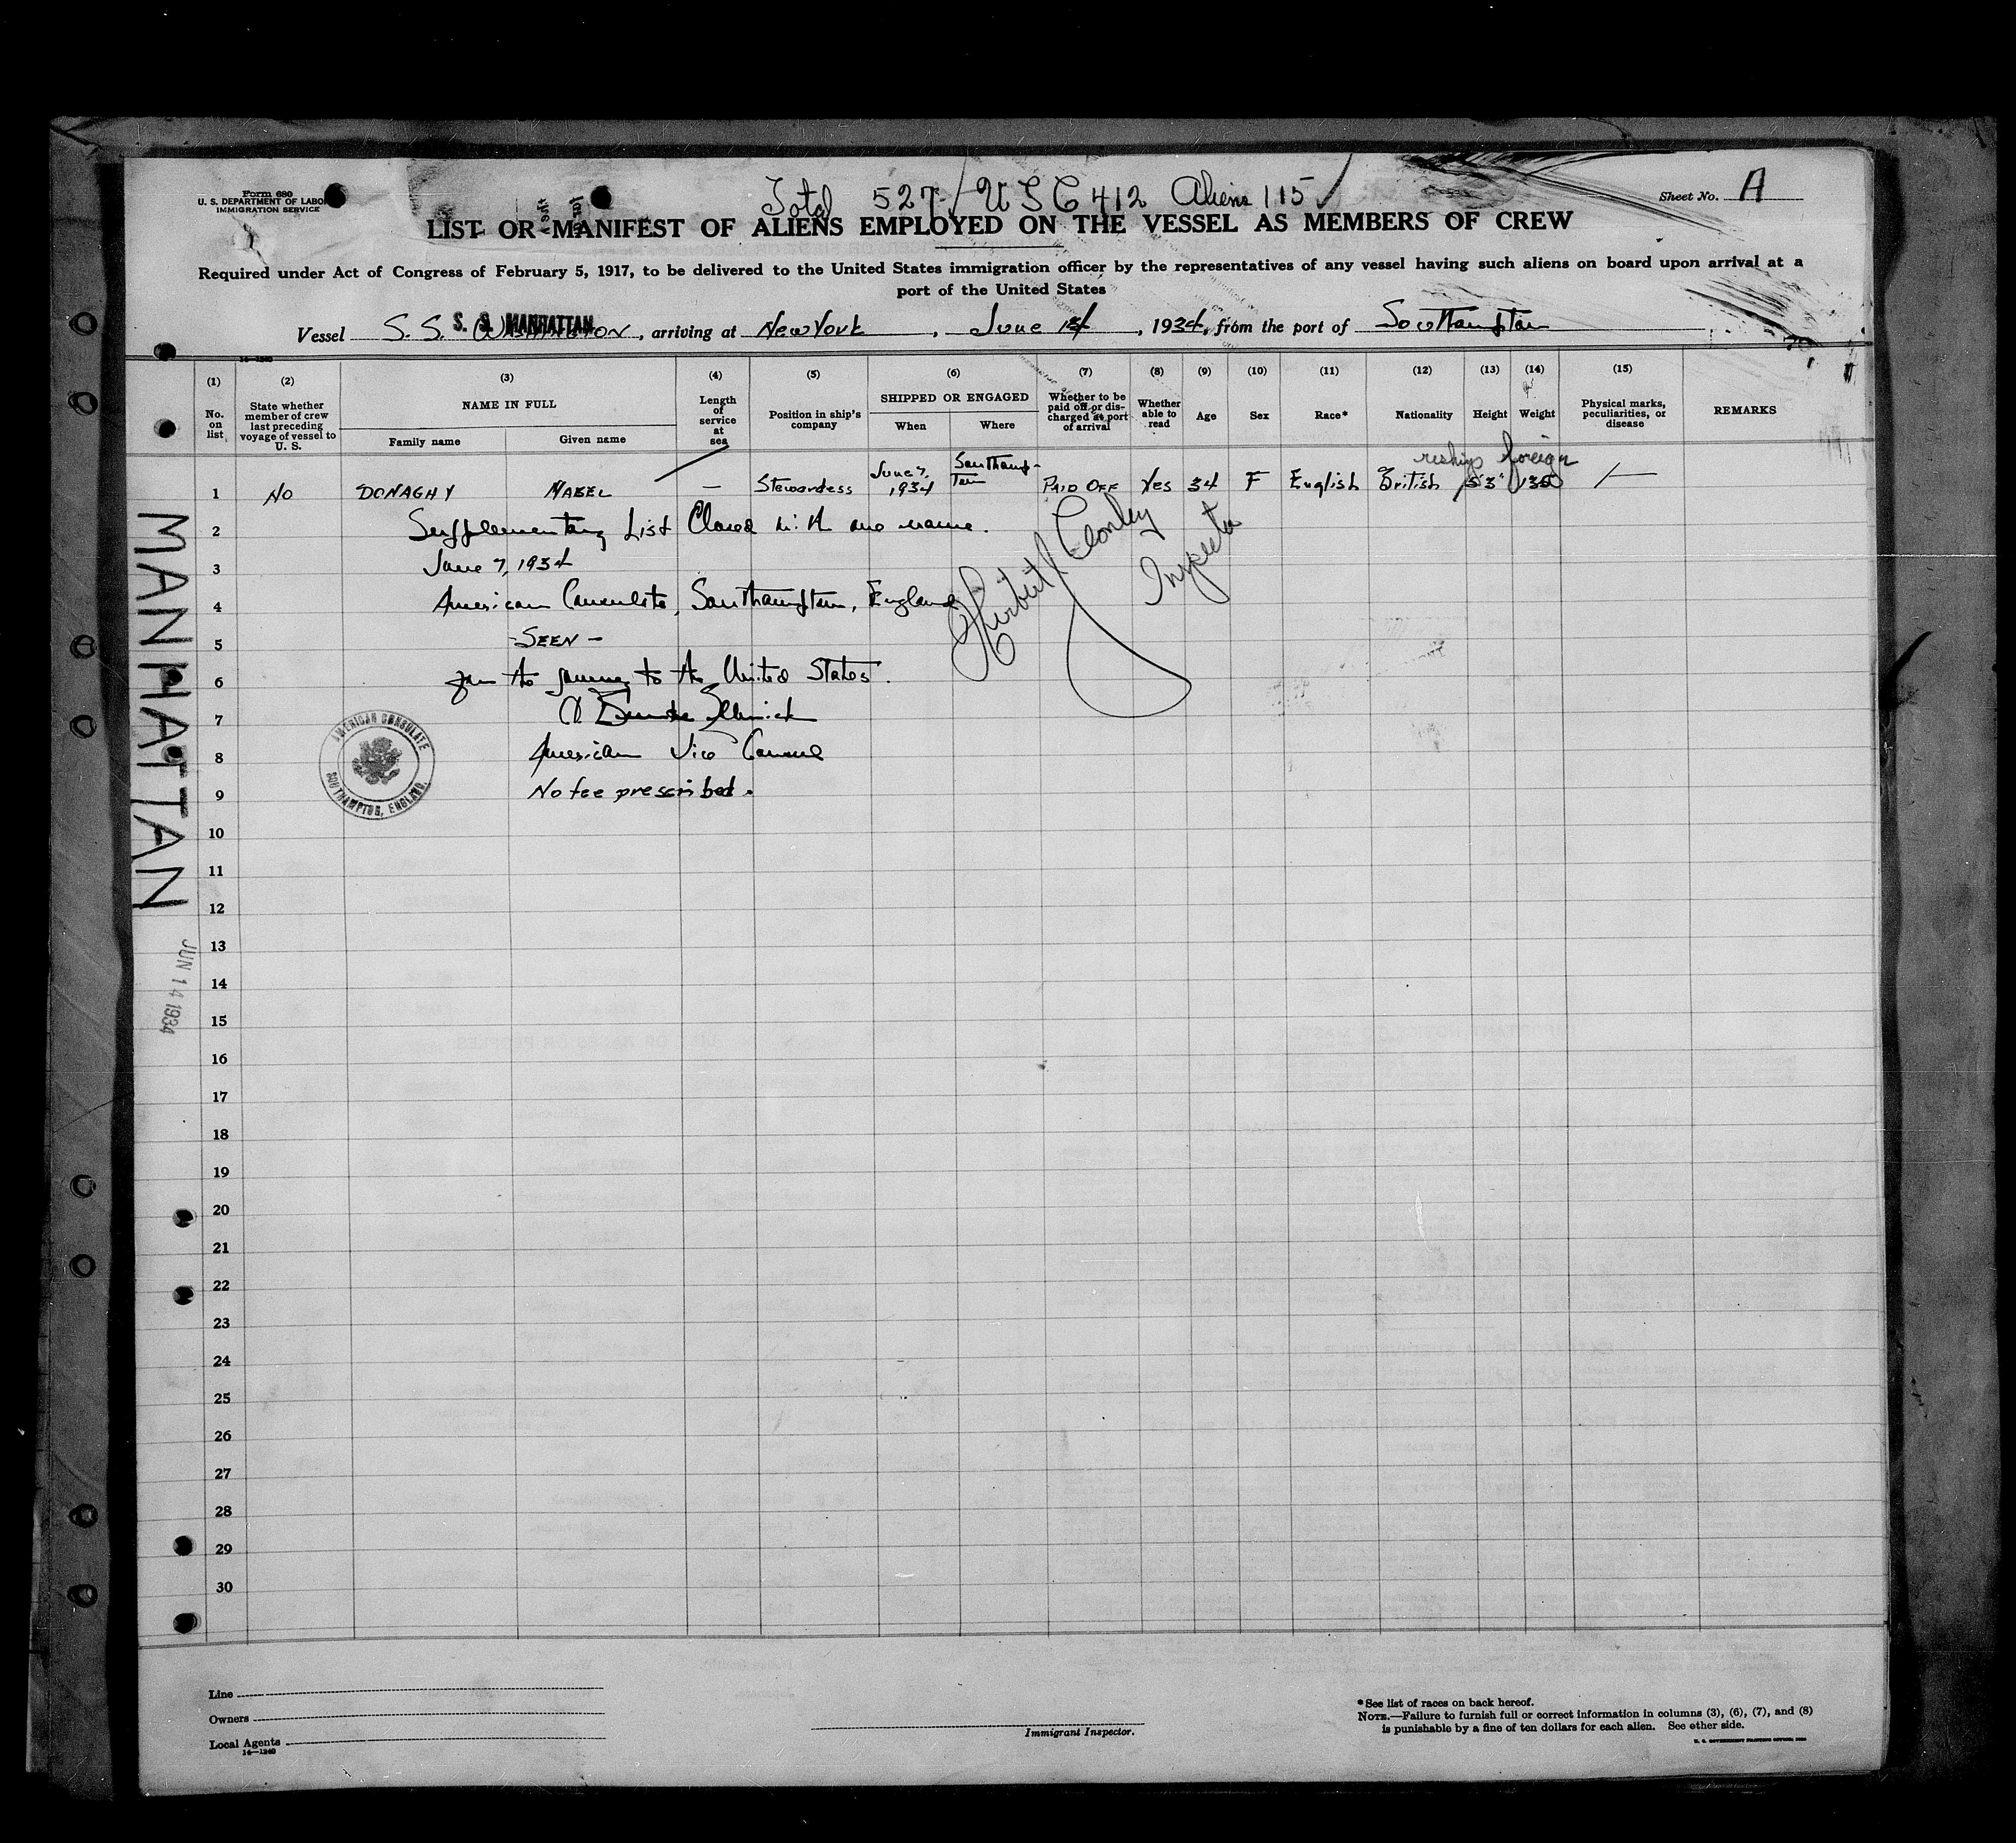 Form 680
U. S. DEPARTMENT OF LABOR
IMMIGRATION SERVICE
Total 527 / USC 412 Aliens 115 ✓
Sheet No. A
LIST OR MANIFEST OF ALIENS EMPLOYED ON THE VESSEL AS MEMBERS OF CREW
Required under Act of Congress of February 5, 1917, to be delivered to the United States immigration officer by the representatives of any vessel having such aliens on board upon arrival at a
port of the United States
Vessel S.S. WASHINGTON S. S. MANHATTAN, arriving at New York, June 14, 1934, from the port of Southampton
14—1240
(1) (2) (3) (4) (5) (6) (7) (8) (9) (10) (11) (12) (13) (14) (15)
No. on list
State whether member of crew last preceding voyage of vessel to U. S.
NAME IN FULL
Family name
Given name
Length of service at sea
Position in ship's company
SHIPPED OR ENGAGED
When
Where
Whether to be paid off or discharged at port of arrival
Whether able to read
Age
Sex
Race*
Nationality
Height
Weight
Physical marks, peculiarities, or disease
REMARKS
reships foreign
1 No DONAGHY MABEL — Stewardess June 7, 1934 Southampton PAID OFF Yes 34 F English British 5'3" 135 —
2 Supplementary List Closed with one name.
3 June 7, 1934
4 American Consulate, Southampton, England
5 -SEEN-
6 for the journey to the United States.
7
8 American Vice Consul
9 No fee prescribed.
Herbert Conley
Inspector
AMERICAN CONSULATE
SOUTHAMPTON, ENGLAND.
10
11
12
13
14
15
16
17
18
19
20
21
22
23
24
25
26
27
28
29
30
MANHATTAN
JUN 14 1934
Line
Owners
Local Agents
14—1240
Immigrant Inspector.
*See list of races on back hereof.
NOTE.—Failure to furnish full or correct information in columns (3), (6), (7), and (8)
is punishable by a fine of ten dollars for each alien. See other side.